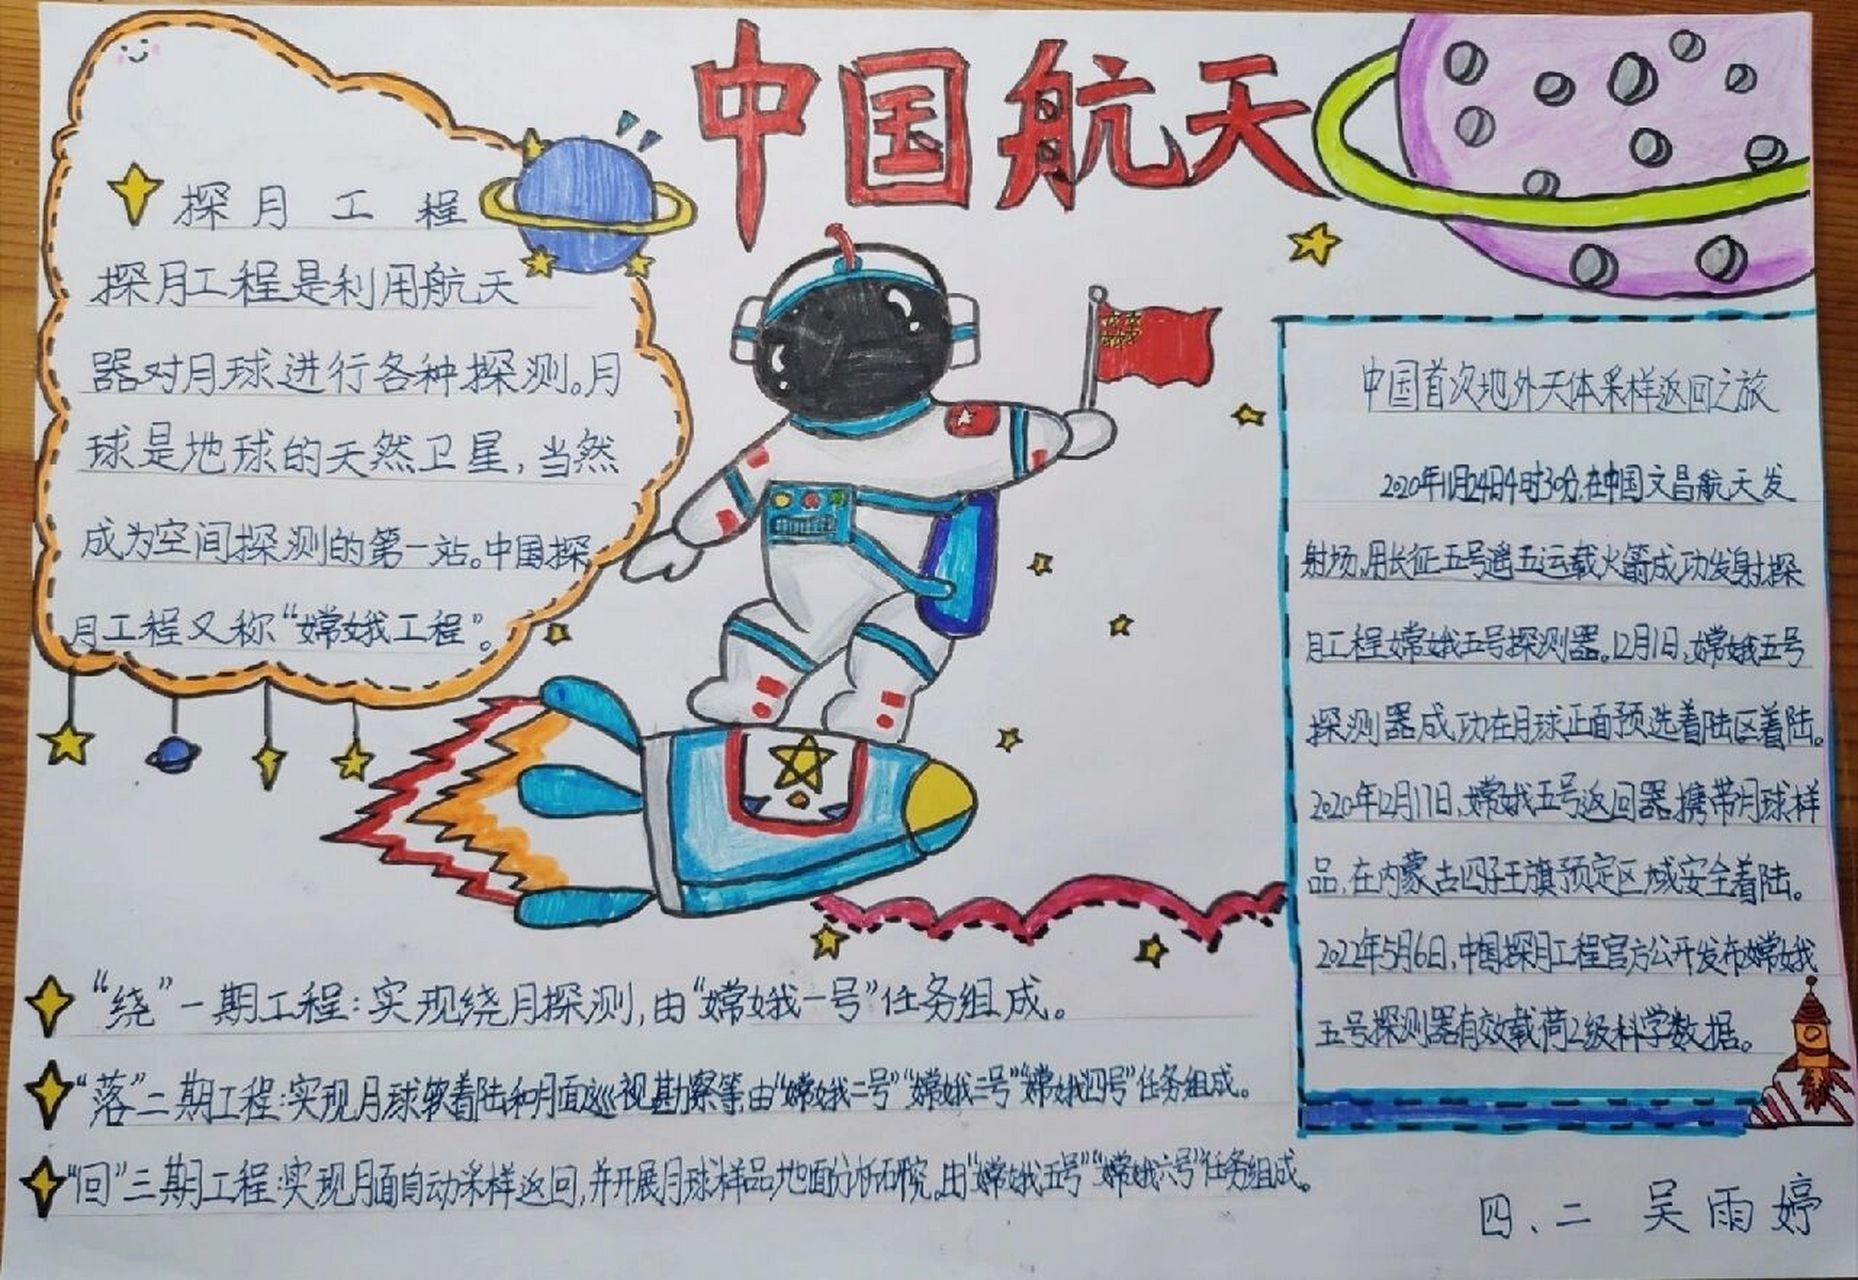 中国航天
探月工程
探月工程是利用航天
器对月球进行各种探测。月
球是地球的天然卫星,当然
成为空间探测的第一站。中国探
月工程又称“嫦娥工程”。
中国首次地外天体采样返回之旅
2020年11月24日4时30分,在中国文昌航天发
射场,用长征五号遥五运载火箭成功发射探
月工程嫦娥五号探测器。12月1日,嫦娥五号
探测器成功在月球正面预选着陆区着陆。
2020年12月17日,嫦娥五号返回器携带月球样
品,在内蒙古四子王旗预定区域安全着陆。
2022年5月6日,中国探月工程官方公开发布嫦娥
五号探测器有效载荷2级科学数据。
“绕”一期工程:实现绕月探测,由“嫦娥一号”任务组成。
“落”二期工程:实现月球软着陆和月面巡视勘察等,由“嫦娥二号”“嫦娥三号”“嫦娥四号”任务组成。
“回”三期工程:实现月面自动采样返回,并开展月球样品地面分析研究。由“嫦娥五号”“嫦娥六号”任务组成。
四、二 吴雨婷